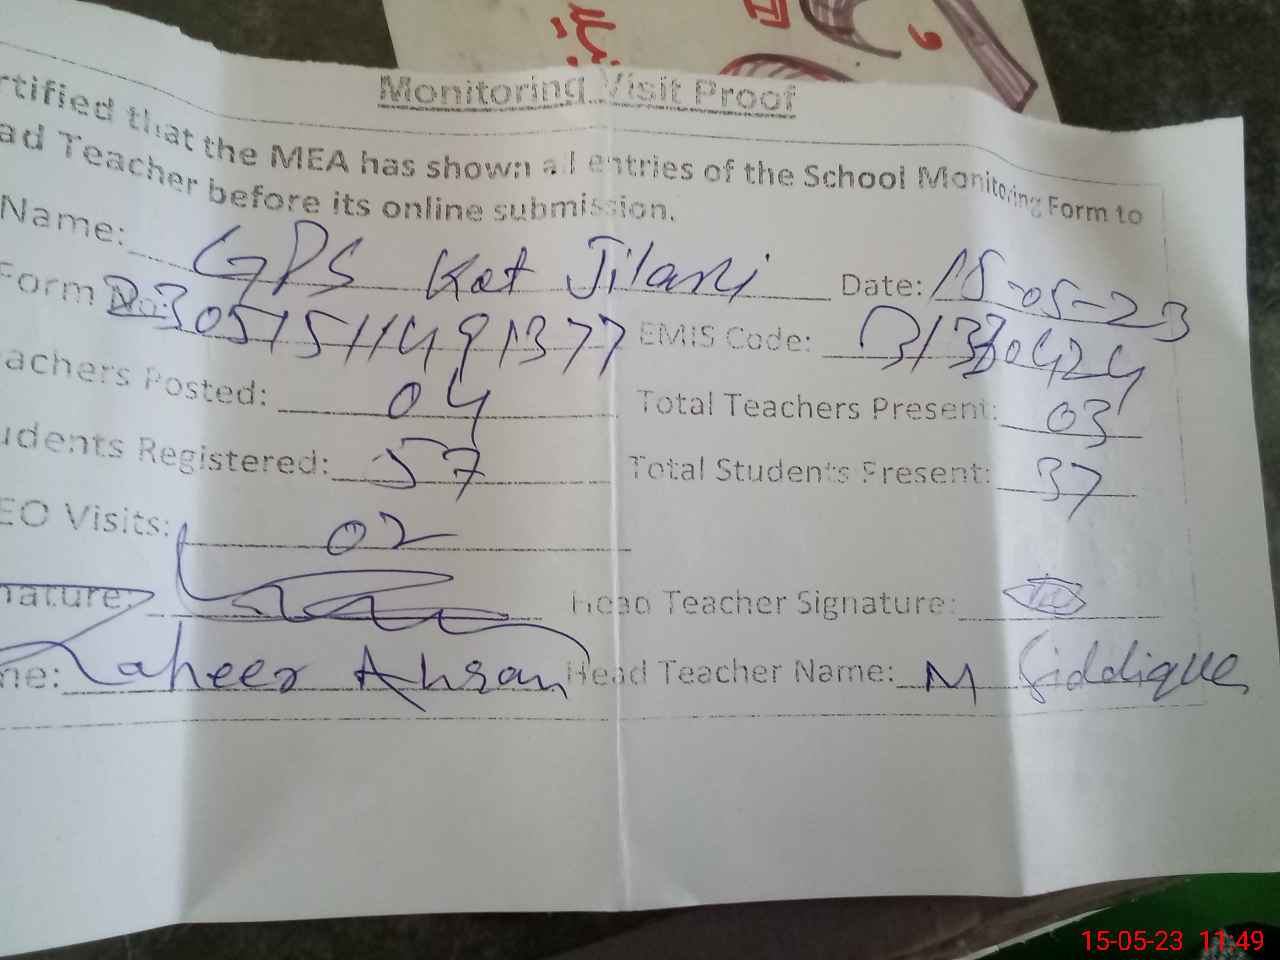 Monitoring Visit Proof
rtified that the MEA has shown all entries of the School Monitoring Form to
ad Teacher before its online submission.
Name: GPS Kot Jilani Date: 15-05-23
Form No: 23051511491377 EMIS Code: 31330424
achers Posted: 04 Total Teachers Present: 03
udents Registered: 57 Total Students Present: 37
EO Visits: 02
nature: Head Teacher Signature:
me: Zaheer Ahsan Head Teacher Name: M Siddique
15-05-23 11:49